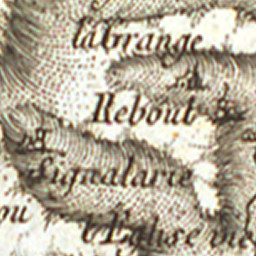 la Grange
Rebout
Sigaalarie
ou
l'Eglise vie